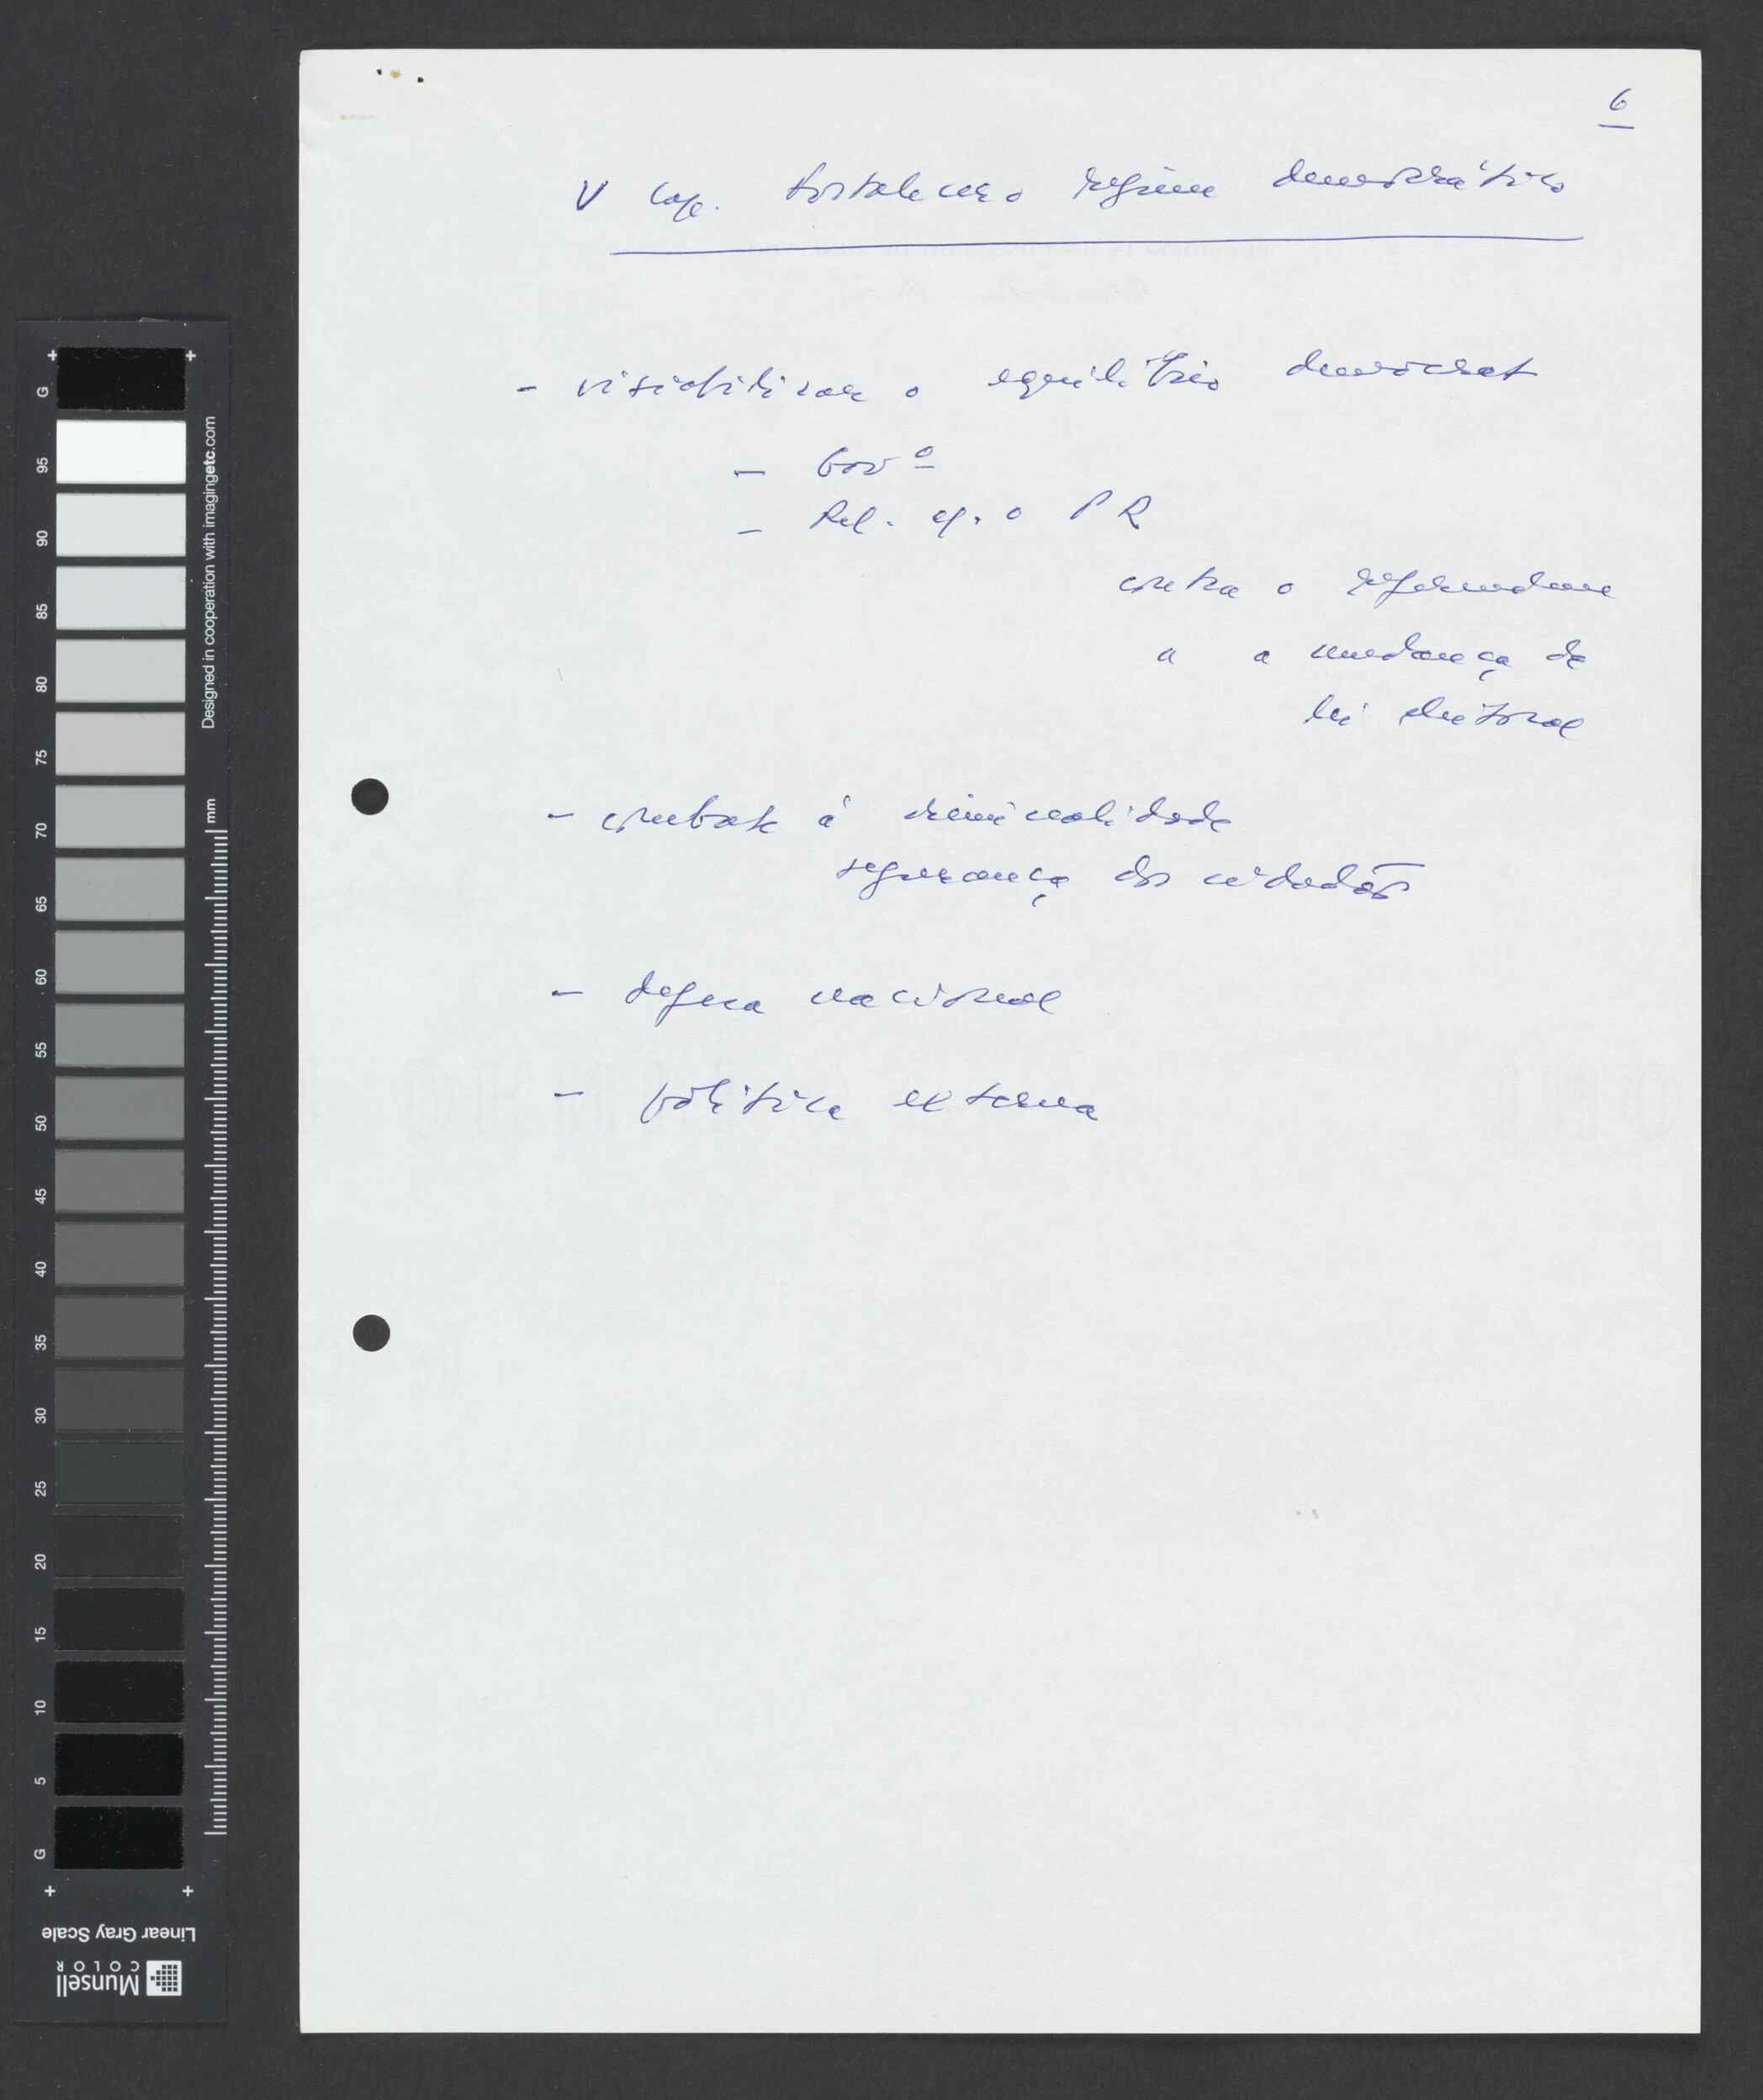 6
V Cap. Fortalecer o regime democrático
- visiabilizar o equilíbrio democrat
- Govº
- Rel. c/. o PR
contra o referendum
a a mudança da
lei eleitoral
- combate à criminalidade
segurança dos cidadãos
- defesa nacional
- política externa
G 95 90 85 80 75 70 65 60 55 50 45 40 35 30 25 20 15 10 5 G
Designed in cooperation with imagingetc.com
mm
Linear Gray Scale
Munsell
COLOR